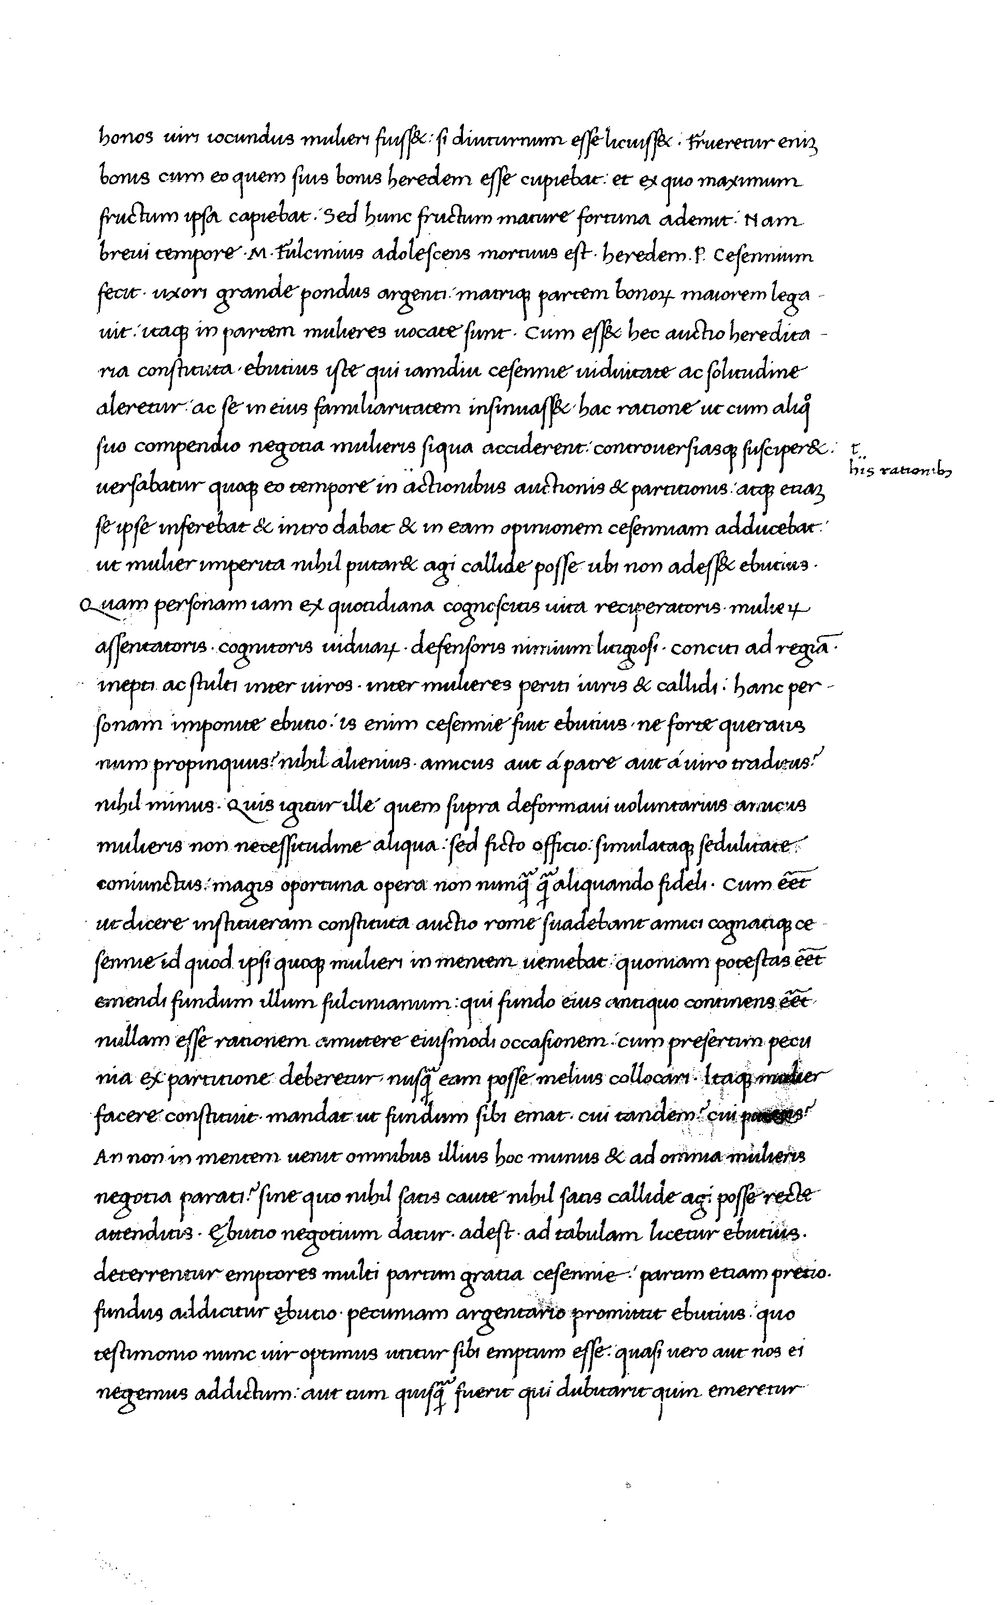 honos uiri iocundus mulieri fuiss&: si diuturnum esse licuiss&. Frueretur eniꝫ
bonis cum eo quem suis bonis heredem esse cupiebat: et ex quo maximum
fructum ipsa capiebat: Sed hunc fructum mature fortuna ademit: Nam
breui tempore .M. Fulcinius adolescens mortuus est. heredem .P. Cesennium
fecit. uxori grande pondus argenti: matriqꝫ partem bonoꝝ maiorem lega-
uit: itaqꝫ in partem mulieres uocate sunt. Cum ess& hec auctio heredita-
ria constituta. ebutius iste qui iamdiu cesennie uiduitate ac solitudine
aleretur: ac se in eius familiaritatem insinuass&. hac ratione ut cum aliqͦ
suo compendio negotia mulieris siqua acciderent: controuersiasqꝫ susciper&:
t̄
his rationibꝰ
uersabatur quoqꝫ eo tempore in äctionibus auctionis & partitionis: atqꝫ etiaꝫ
se ipse inferebat & intro dabat & in eam opinionem cesenniam adducebat:
ut mulier imperita nihil putar& agi callide posse ubi non adess& ebutius.
Quam personam iam ex quotidiana cognoscitis uita reciperatoris. mulieꝝ
assentatoris. cognitoris uiduaꝝ. defensoris nimium litigiosi. conciti ad regiā.
inepti ac stulti inter uiros. inter mulieres periti iuris & callidi: hanc per-
sonam imponite ebutio: is enim cesennie fuit ebutius. ne forte queratis
num propinquus? nihil alienius. amicus aut á patre aut á uiro traditus?
nihil minus. Quis igitur ille quem supra deformaui uoluntarius amicus
mulieris non necessitudine aliqua: sed ficto officio: simulataqꝫ sedulitate:
coniunctus: magis oportuna opera non nunqꝫ̄ qꝫ̄ aliquando fideli. Cum ēēt
ut dicere institueram constituta auctio rome suadebant amici cognatiqꝫ ce-
sennie id quod ipsi quoqꝫ mulieri in mentem ueniebat: quoniam potestas ēēt
emendi fundum illum fulcinianum: qui fundo eius antiquo continens ēēt.
nullam esse rationem amittere eiusmodi occasionem: cum presertim pecu
nia ex partitione deberetur. nusq̄ eam posse melius collocari. Itaqꝫ mulier
facere constituit. mandat ut fundum sibi emat. cui tandem? cui putatis?
An non in mentem uenit omnibus illius hoc munus & ad omnia mulieris
negotia parati? sine quo nihil satis caute nihil satis callide agi posse recte
attenditis. Ębutio negotium datur. adest. ad tabulam licetur ebutius.
deterrentur emptores multi partim gratia cesennie: partim etiam pretio.
fundus addicitur ębutio. pecuniam argentario promittit ebutius: quo
testimonio nunc uir optimus utitur sibi emptum esse: quasi uero aut nos ei
negemus addictum: aut tum quisq̄ fuerit qui dubitarit quin emeretur